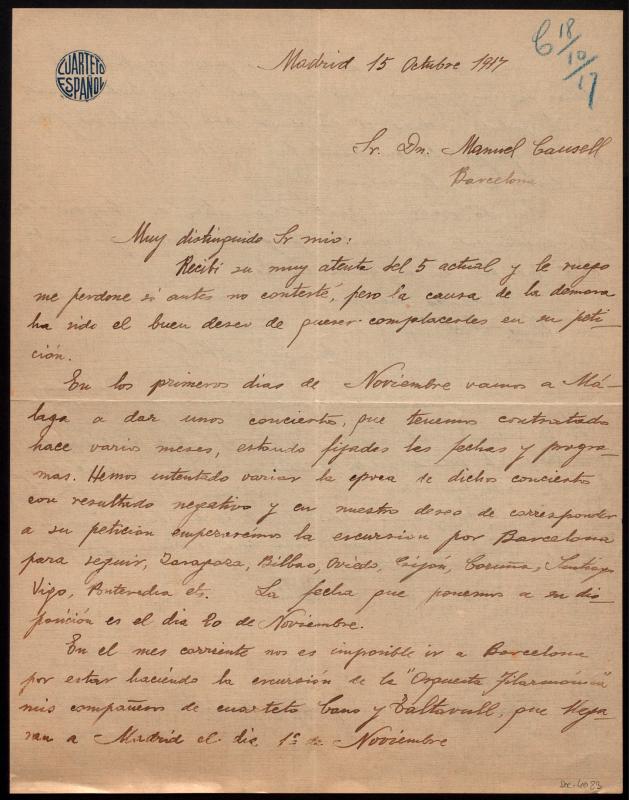 CUARTETO
ESPAÑOL
Madrid 15 Octubre 1917
C 18/10/17
Sr. Dn. Manuel Causell
Barcelona
Muy distinguido Sr mio:
Recibi su muy atenta del 5 actual y le ruego
me perdone si antes no contesté, pero la causa de la demora
ha sido el buen deseo de querer complacerles en su peti-
ción.
En los primeros dias de Noviembre vamos a Má-
laga a dar unos conciertos, que tenemos contratado
hace varios meses, estando fijadas las fechas y progra-
mas. Hemos intentado variar la epoca de dichos conciertos
con resultado negativo y en nuestro deseo de corresponder
a su peticion empezaremos la excursion por Barcelona
para seguir, Zaragoza, Bilbao, Oviedo, Gijón, Coruña, Santiago
Vigo, Pontevedra etc. La fecha que ponemos a su dis-
posición es el dia 20 de Noviembre.
En el mes corriente nos es imposible ir a Barcelona
por estar haciendo la excursión de la "Orquesta Filarmónica"
mis compañeros de cuarteto Cano y Taltavull, que llega-
ran a Madrid el dia 1º de Noviembre
Doc-4083